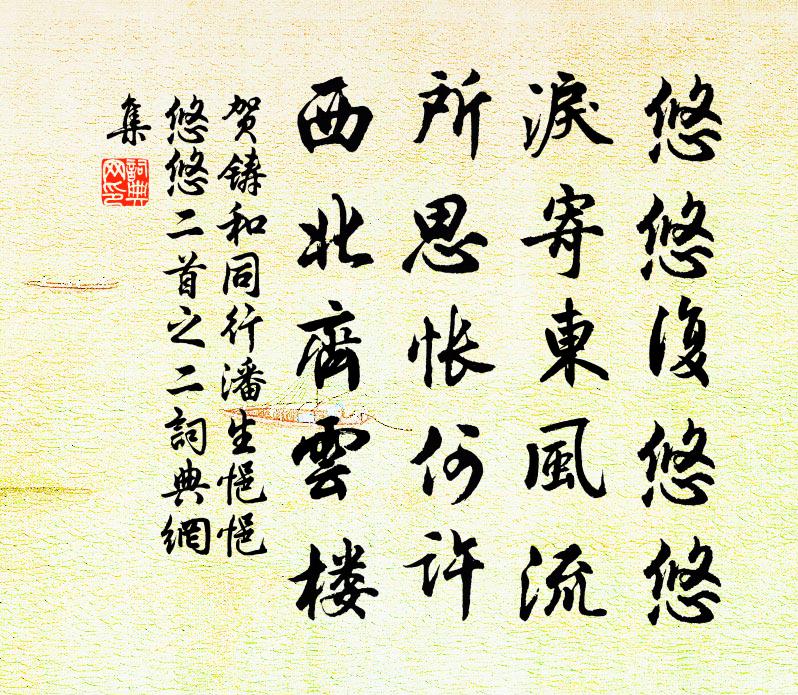 悠悠復悠悠
淚寄東風流
所思悵何許
西北齊雲楼
贺鑄和同行潘生悒悒
悠悠二首之二詞典網
集
詞典
网印